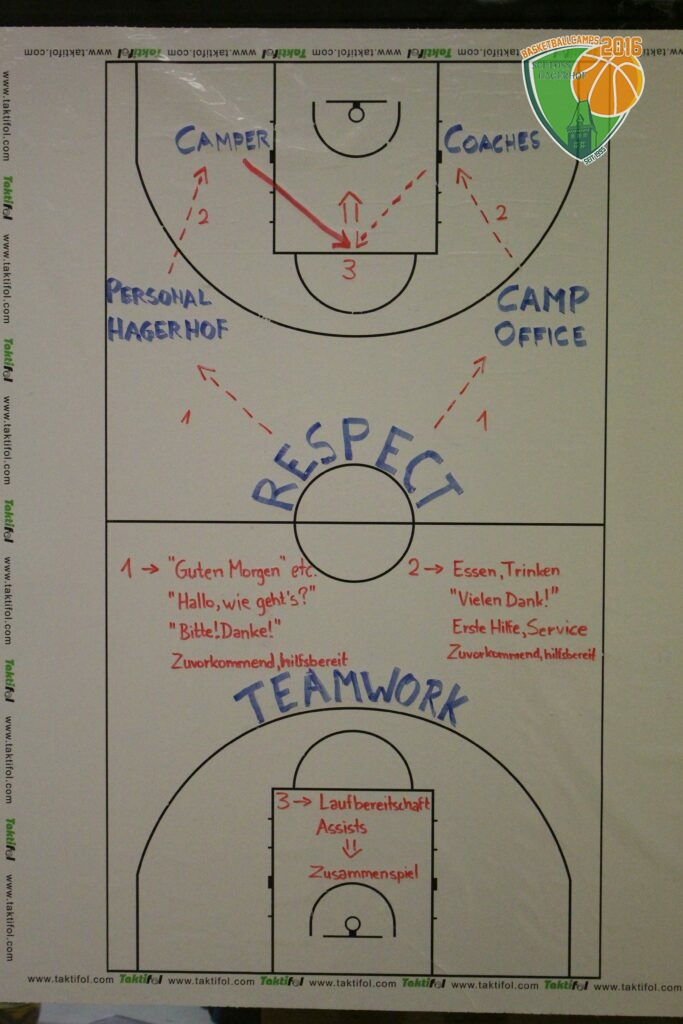 www.taktifol.com Taktifol www.taktifol.com Taktifol www.taktifol.com Taktifol www.taktifol.com
BASKETBALLCAMPS 2016
HAGERHOF
SEIT 1989
CAMPER
COACHES
2
2
3
PERSONAL
HAGERHOF
CAMP
OFFICE
1
1
RESPECT
1 → "Guten Morgen" etc.
"Hallo, wie geht's?"
"Bitte! Danke!"
Zuvorkommend, hilfsbereit
2 → Essen, Trinken
"Vielen Dank!"
Erste Hilfe, Service
Zuvorkommend, hilfsbereit
TEAMWORK
3 → Laufbereitschaft
Assists
Zusammenspiel
www.taktifol.com
Taktifol
www.taktifol.com
Taktifol
www.taktifol.com
Taktifol
www.taktifol.com
Taktifol
www.taktifol.com
Taktifol
www.taktifol.com
www.taktifol.com Taktifol www.taktifol.com Taktifol www.taktifol.com Taktifol www.taktifol.com Taktifol www.taktifol.com